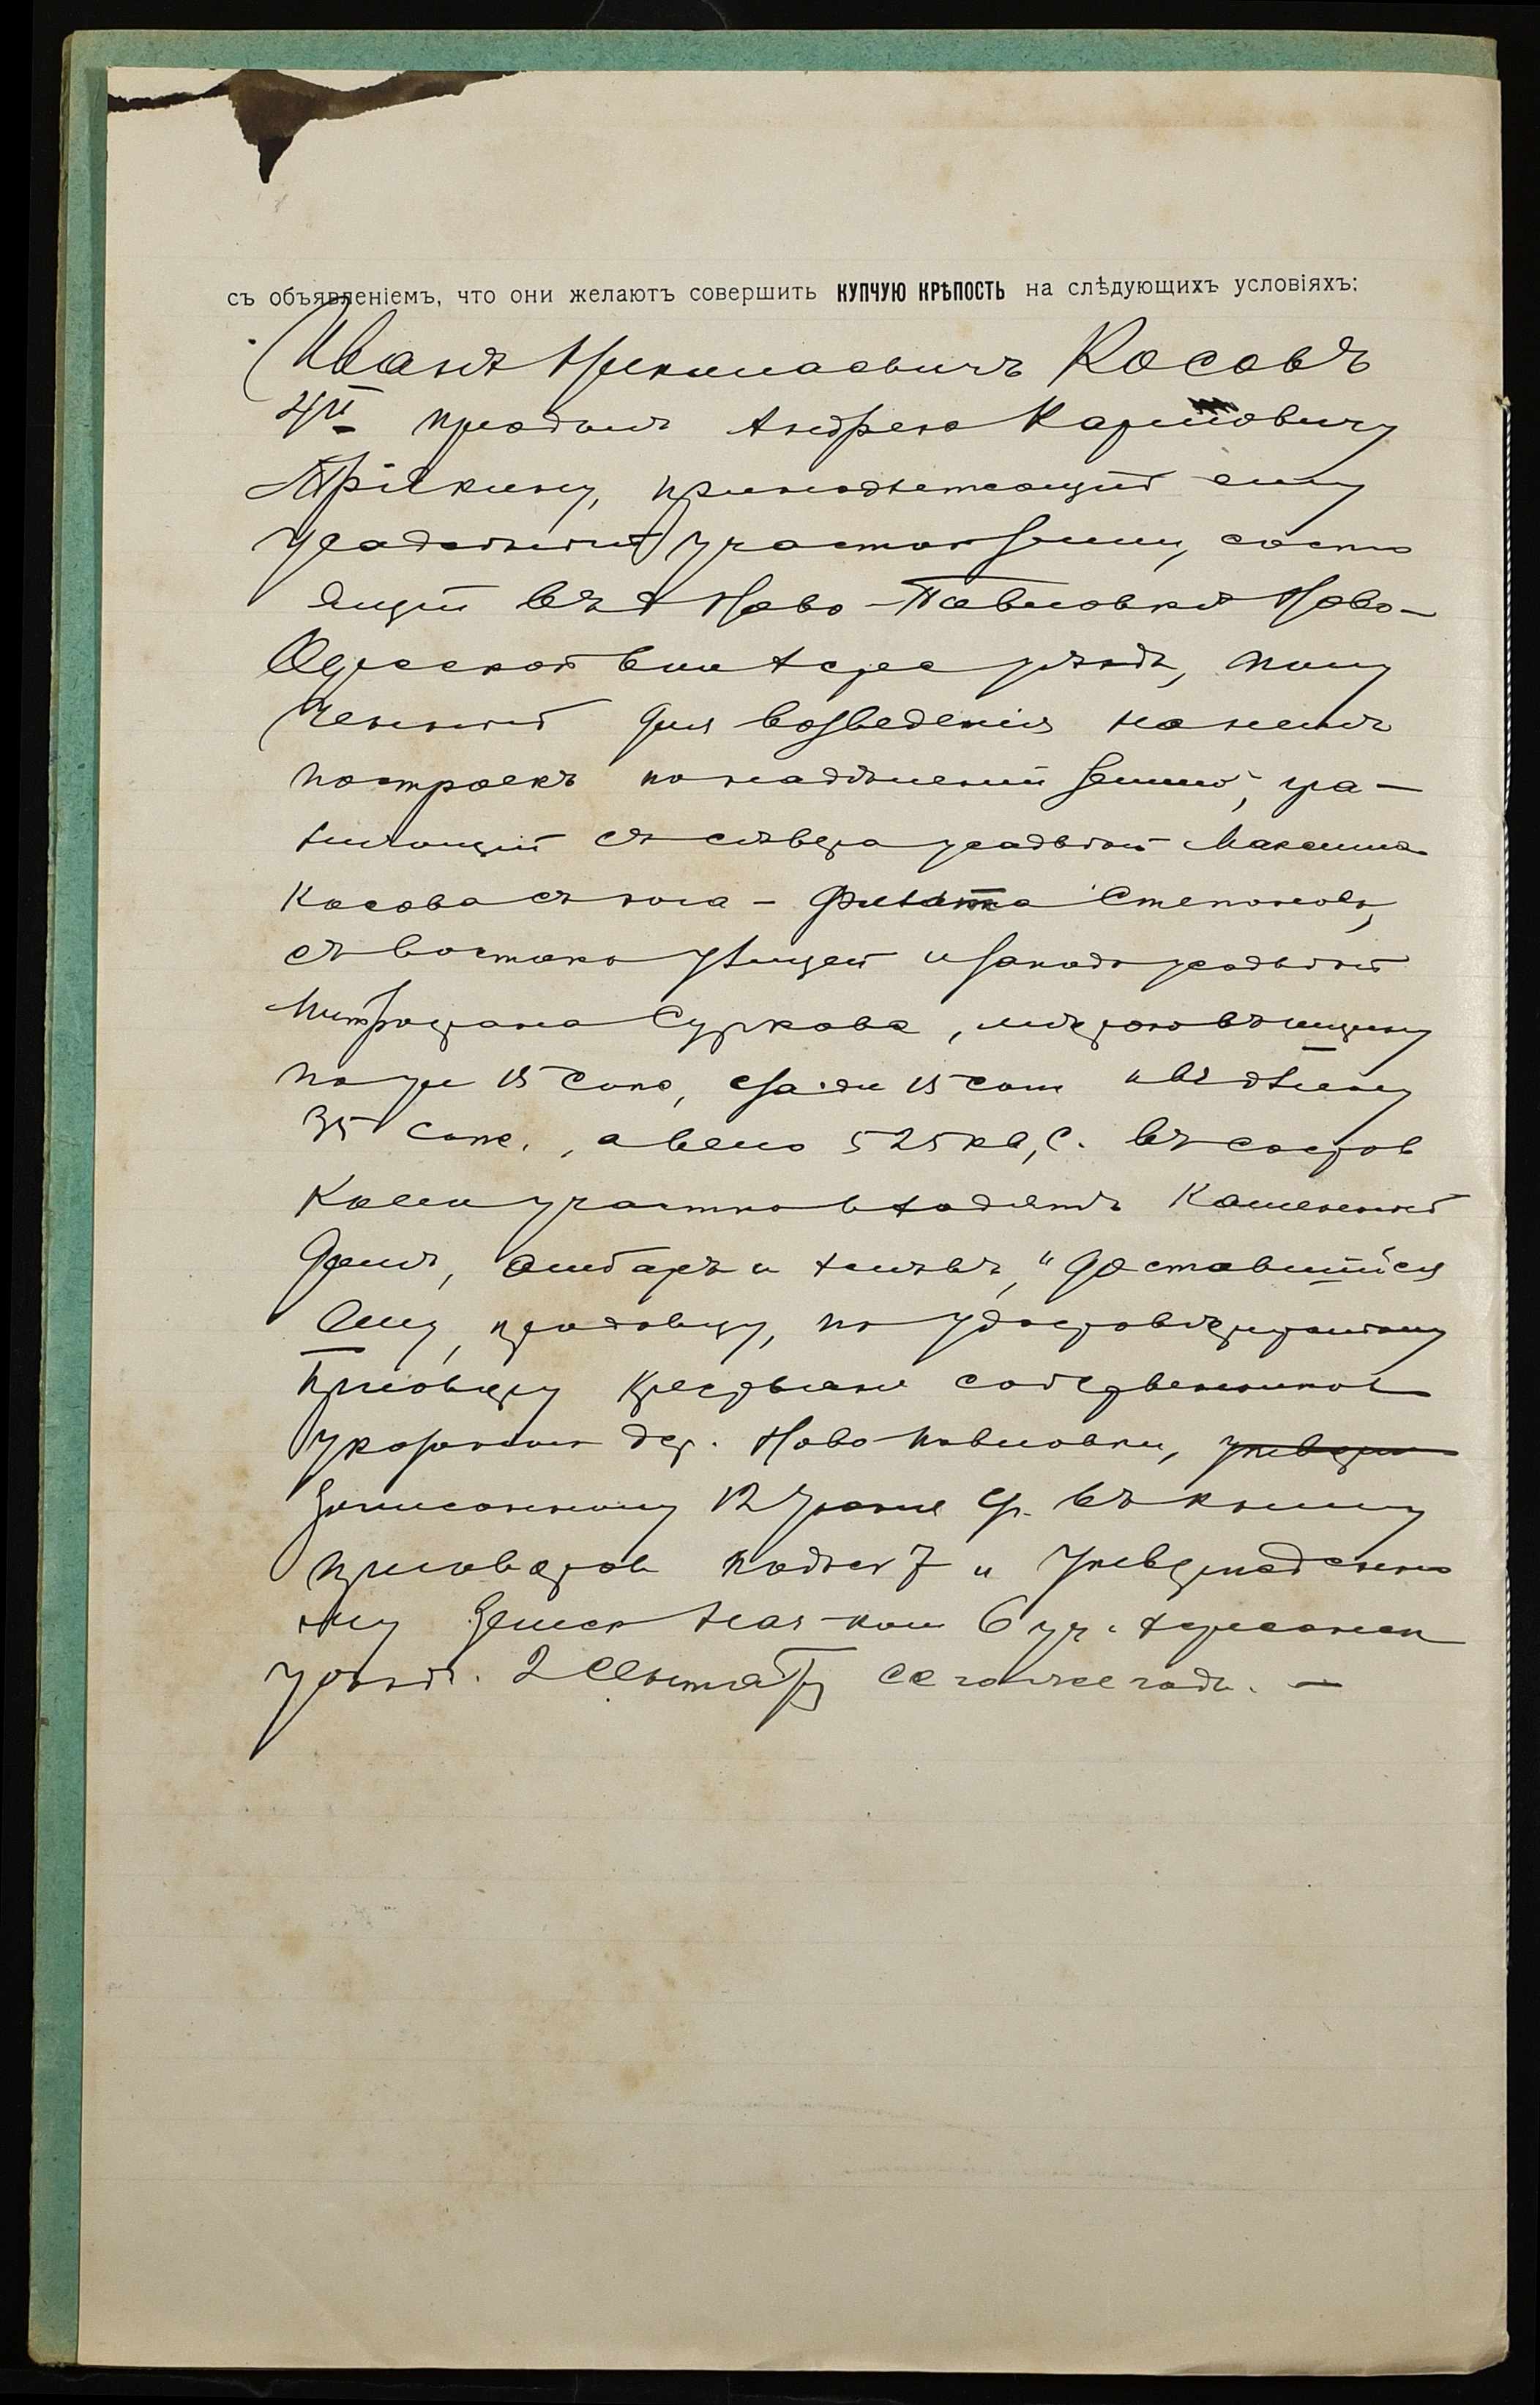 съ объявленіемъ, что они желаютъ совершить КУПЧУЮ КРѢПОСТЬ на слѣдующихъ условіяхъ:
Иванъ Косовъ
4й продалъ Андрею Карповичу
принадлежащій ему
усадебный участокъ земли, состо
ящій въ д Ново-Павловкѣ Ново-
Одесской вол Херс уѣзда, полу
ченный для возведенія на немъ
построекъ по надѣленіи землею, гра-
ничащій съ сѣвера усадьбой Максима
Косова съ юга - Филата Степанова,
съ востока улицей и запада усадьбой
Митрофана Суркова, мѣрою въ ширину
по ул 15 саж, сзади 15 саж и въ длину
35 саж., а всего 525 кв, с. въ состав
коего участка входятъ каменный
домъ, амбаръ и хлѣвъ, доставшійся
ему, продавцу, по удостовѣренному
приговору крестьянъ собственников
указанной дер. Ново Павловки,
записанному 12 Іюня с.г. въ книгу
приговоров под № 7 и утвержденно
му Земск Нач-ком 6 уч. Херсонск
уѣзда. 2 Сентября сего же года. —